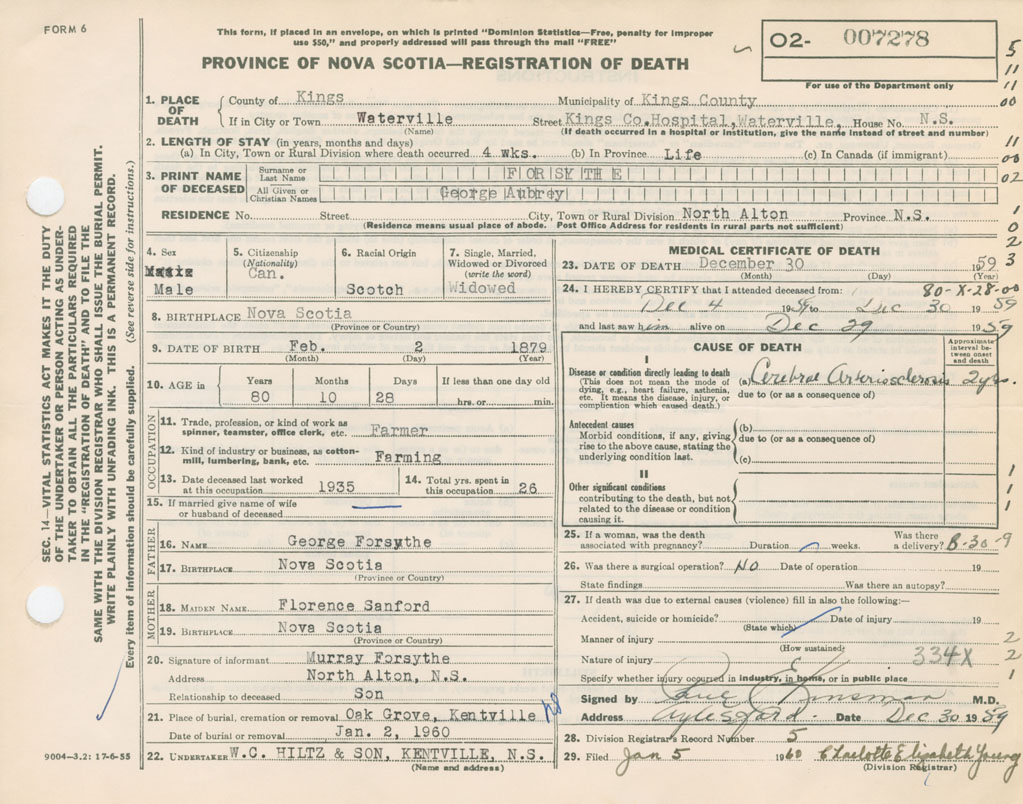 FORM 6
This form, if placed in an envelope, on which is printed "Dominion Statistics—Free, penalty for improper
use $50," and properly addressed will pass through the mail "FREE"
PROVINCE OF NOVA SCOTIA—REGISTRATION OF DEATH
02- 007278
For use of the Department only
5
11
11
00
1. PLACE OF DEATH
County of Kings Municipality of Kings County
If in City or Town Waterville Street Kings Co. Hospital, Waterville, House No. N.S.
(Name) (If death occurred in a hospital or institution, give the name instead of street and number)
2. LENGTH OF STAY (in years, months and days)
(a) In City, Town or Rural Division where death occurred 4 wks. (b) In Province Life (c) In Canada (if immigrant)
11
00
02
3. PRINT NAME OF DECEASED
Surname or Last Name FORSYTHE
All Given or Christian Names George Aubrey
RESIDENCE No. Street City, Town or Rural Division North Alton Province N.S.
(Residence means usual place of abode. Post Office Address for residents in rural parts not sufficient)
1
0
2
3
4. Sex
Male
5. Citizenship
(Nationality)
Can.
6. Racial Origin
Scotch
7. Single, Married,
Widowed or Divorced
(write the word)
Widowed
8. BIRTHPLACE Nova Scotia
(Province or Country)
9. DATE OF BIRTH Feb. 2 1879
(Month) (Day) (Year)
10. AGE in
Years Months Days If less than one day old
80 10 28 hrs. or min.
OCCUPATION
11. Trade, profession, or kind of work as
spinner, teamster, office clerk, etc. Farmer
12. Kind of industry or business, as cotton-
mill, lumbering, bank, etc. Farming
13. Date deceased last worked
at this occupation 1935
14. Total yrs. spent in
this occupation 26
15. If married give name of wife
or husband of deceased
FATHER
16. NAME George Forsythe
17. BIRTHPLACE Nova Scotia
(Province or Country)
MOTHER
18. MAIDEN NAME Florence Sanford
19. BIRTHPLACE Nova Scotia
(Province or Country)
20. Signature of informant Murray Forsythe
Address North Alton, N.S.
Relationship to deceased Son
21. Place of burial, cremation or removal Oak Grove, Kentville
Date of burial or removal Jan. 2, 1960
22. UNDERTAKER W.C. HILTZ & SON, KENTVILLE, N.S.
(Name and address)
MEDICAL CERTIFICATE OF DEATH
23. DATE OF DEATH December 30 1959
(Month) (Day) (Year)
24. I HEREBY CERTIFY that I attended deceased from: 80-X-28-00
Dec 4 1959 to Dec 30 1959
and last saw him alive on Dec 29 1959
CAUSE OF DEATH
Approximate
interval be-
tween onset
and death
I
Disease or condition directly leading to death
(This does not mean the mode of
dying, e.g., heart failure, asthenia,
etc. It means the disease, injury, or
complication which caused death.)
(a) Cerebral Arteriosclerosis 2 yrs.
due to (or as a consequence of)
Antecedent causes
Morbid conditions, if any, giving
rise to the above cause, stating the
underlying condition last.
(b)
due to (or as a consequence of)
(c)
II
Other significant conditions
contributing to the death, but not
related to the disease or condition
causing it.
1
1
1
25. If a woman, was the death
associated with pregnancy? Duration weeks.
Was there
a delivery? B-30-9
26. Was there a surgical operation? NO Date of operation 19
State findings Was there an autopsy?
27. If death was due to external causes (violence) fill in also the following:—
Accident, suicide or homicide? Date of injury 19
(State which)
Manner of injury 2
(How sustained)
Nature of injury 334X 2
Specify whether injury occurred in industry, in home, or in public place 1
Signed by Kinsman M.D.
Address Aylesford Date Dec 30 1959
28. Division Registrar's Record Number 5
29. Filed Jan 5 1960 Charlotte Elizabeth Young
(Division Registrar)
SEC. 14—VITAL STATISTICS ACT MAKES IT THE DUTY
OF THE UNDERTAKER OR PERSON ACTING AS UNDER-
TAKER TO OBTAIN ALL THE PARTICULARS REQUIRED
IN THE "REGISTRATION OF DEATH" AND TO FILE THE
SAME WITH THE DIVISION REGISTRAR WHO SHALL ISSUE THE BURIAL PERMIT.
WRITE PLAINLY WITH UNFADING INK. THIS IS A PERMANENT RECORD.
Every item of information should be carefully supplied. (See reverse side for instructions.)
9004-3.2: 17-6-55